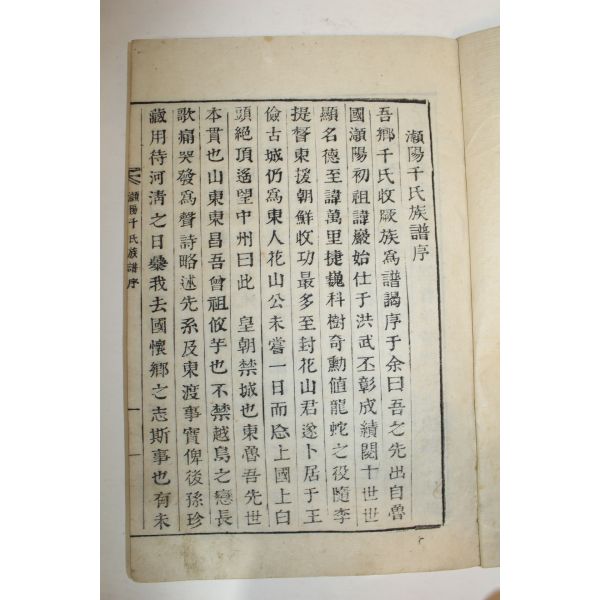 瀕陽千氏族譜序
吾鄉千氏收厥族爲譜謁序于余曰吾之先出自魯
國瀕陽初祖諱巖始仕于洪武丕彰成績閱十世世
顯名德至諱萬里捷巍科樹奇勳値龍蛇之役隨李
提督東援朝鮮收功最多至封花山君遂卜居于王
儉古城仍爲東人花山公未嘗一日而忘上國上白
頭絕頂遙望中州曰此 皇朝禁城也東魯吾先世
本貫也山東東昌吾曾祖攸芋也不禁越鳥之戀長
歌痛哭發爲聲詩略述先系及東渡事實俾後孫珍
藏用待河淸之日彙我去國懷鄉之志斯事也有未
瀕陽千氏族譜序
一